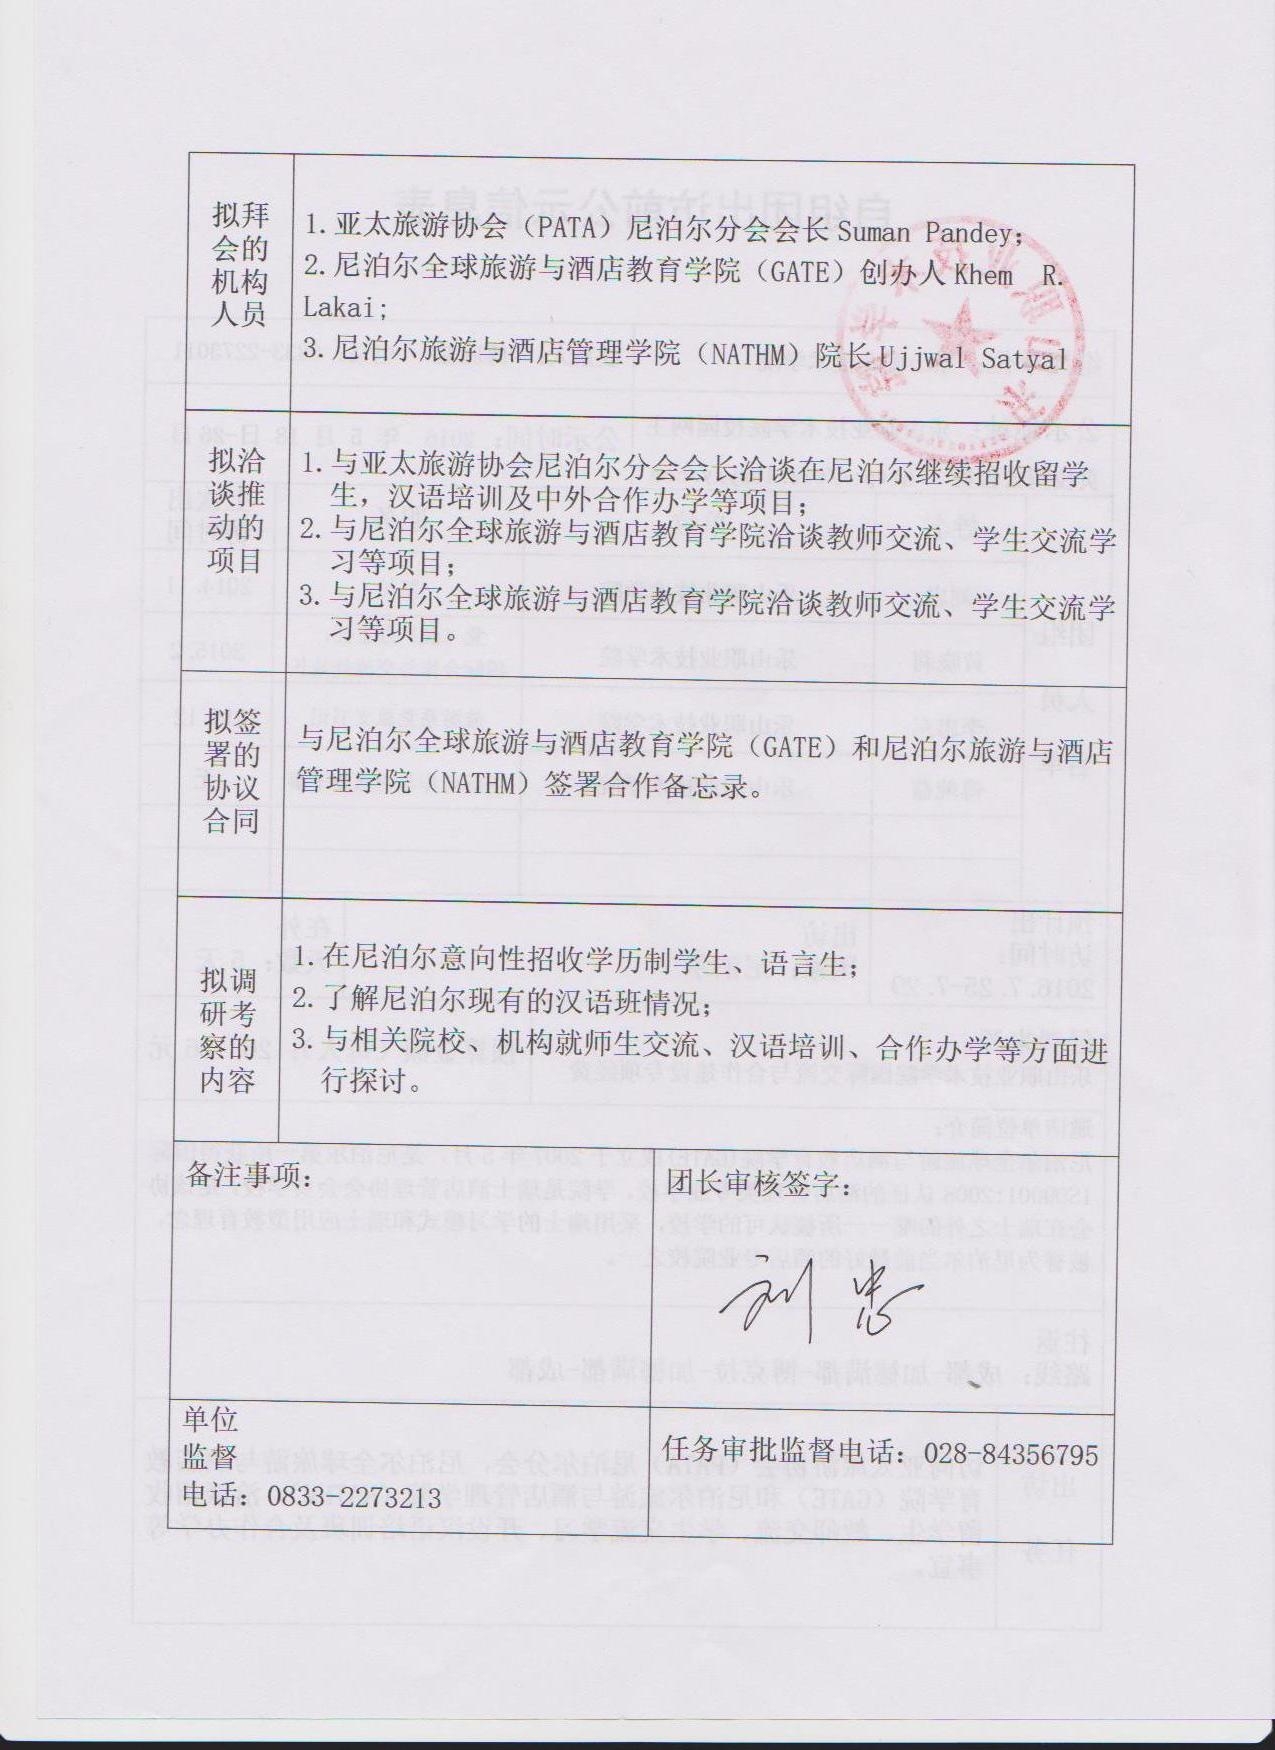 拟拜
会的
机构
人员
1.亚太旅游协会（PATA）尼泊尔分会会长Suman Pandey；
2.尼泊尔全球旅游与酒店教育学院（GATE）创办人Khem R.
Lakai;
3.尼泊尔旅游与酒店管理学院（NATHM）院长Ujjwal Satyal
拟洽
谈推
动的
项目
1.与亚太旅游协会尼泊尔分会会长洽谈在尼泊尔继续招收留学
生，汉语培训及中外合作办学等项目；
2.与尼泊尔全球旅游与酒店教育学院洽谈教师交流、学生交流学
习等项目；
3.与尼泊尔全球旅游与酒店教育学院洽谈教师交流、学生交流学
习等项目。
拟签
署的
协议
合同
与尼泊尔全球旅游与酒店教育学院（GATE）和尼泊尔旅游与酒店
管理学院（NATHM）签署合作备忘录。
拟调
研考
察的
内容
1.在尼泊尔意向性招收学历制学生、语言生；
2.了解尼泊尔现有的汉语班情况；
3.与相关院校、机构就师生交流、汉语培训、合作办学等方面进
行探讨。
备注事项：
团长审核签字：
刘忠
单位
监督
电话：0833-2273213
任务审批监督电话：028-84356795